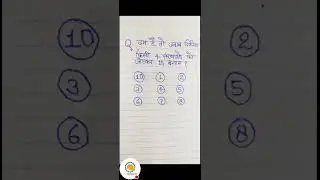 Q. दम है तो जवाब दीजिए
किन्हीं 4 संख्याओं को
जोड़कर 15 बनाओ ?
10 1 2
3 4 5
6 7 8
10 2
3 5
6 8